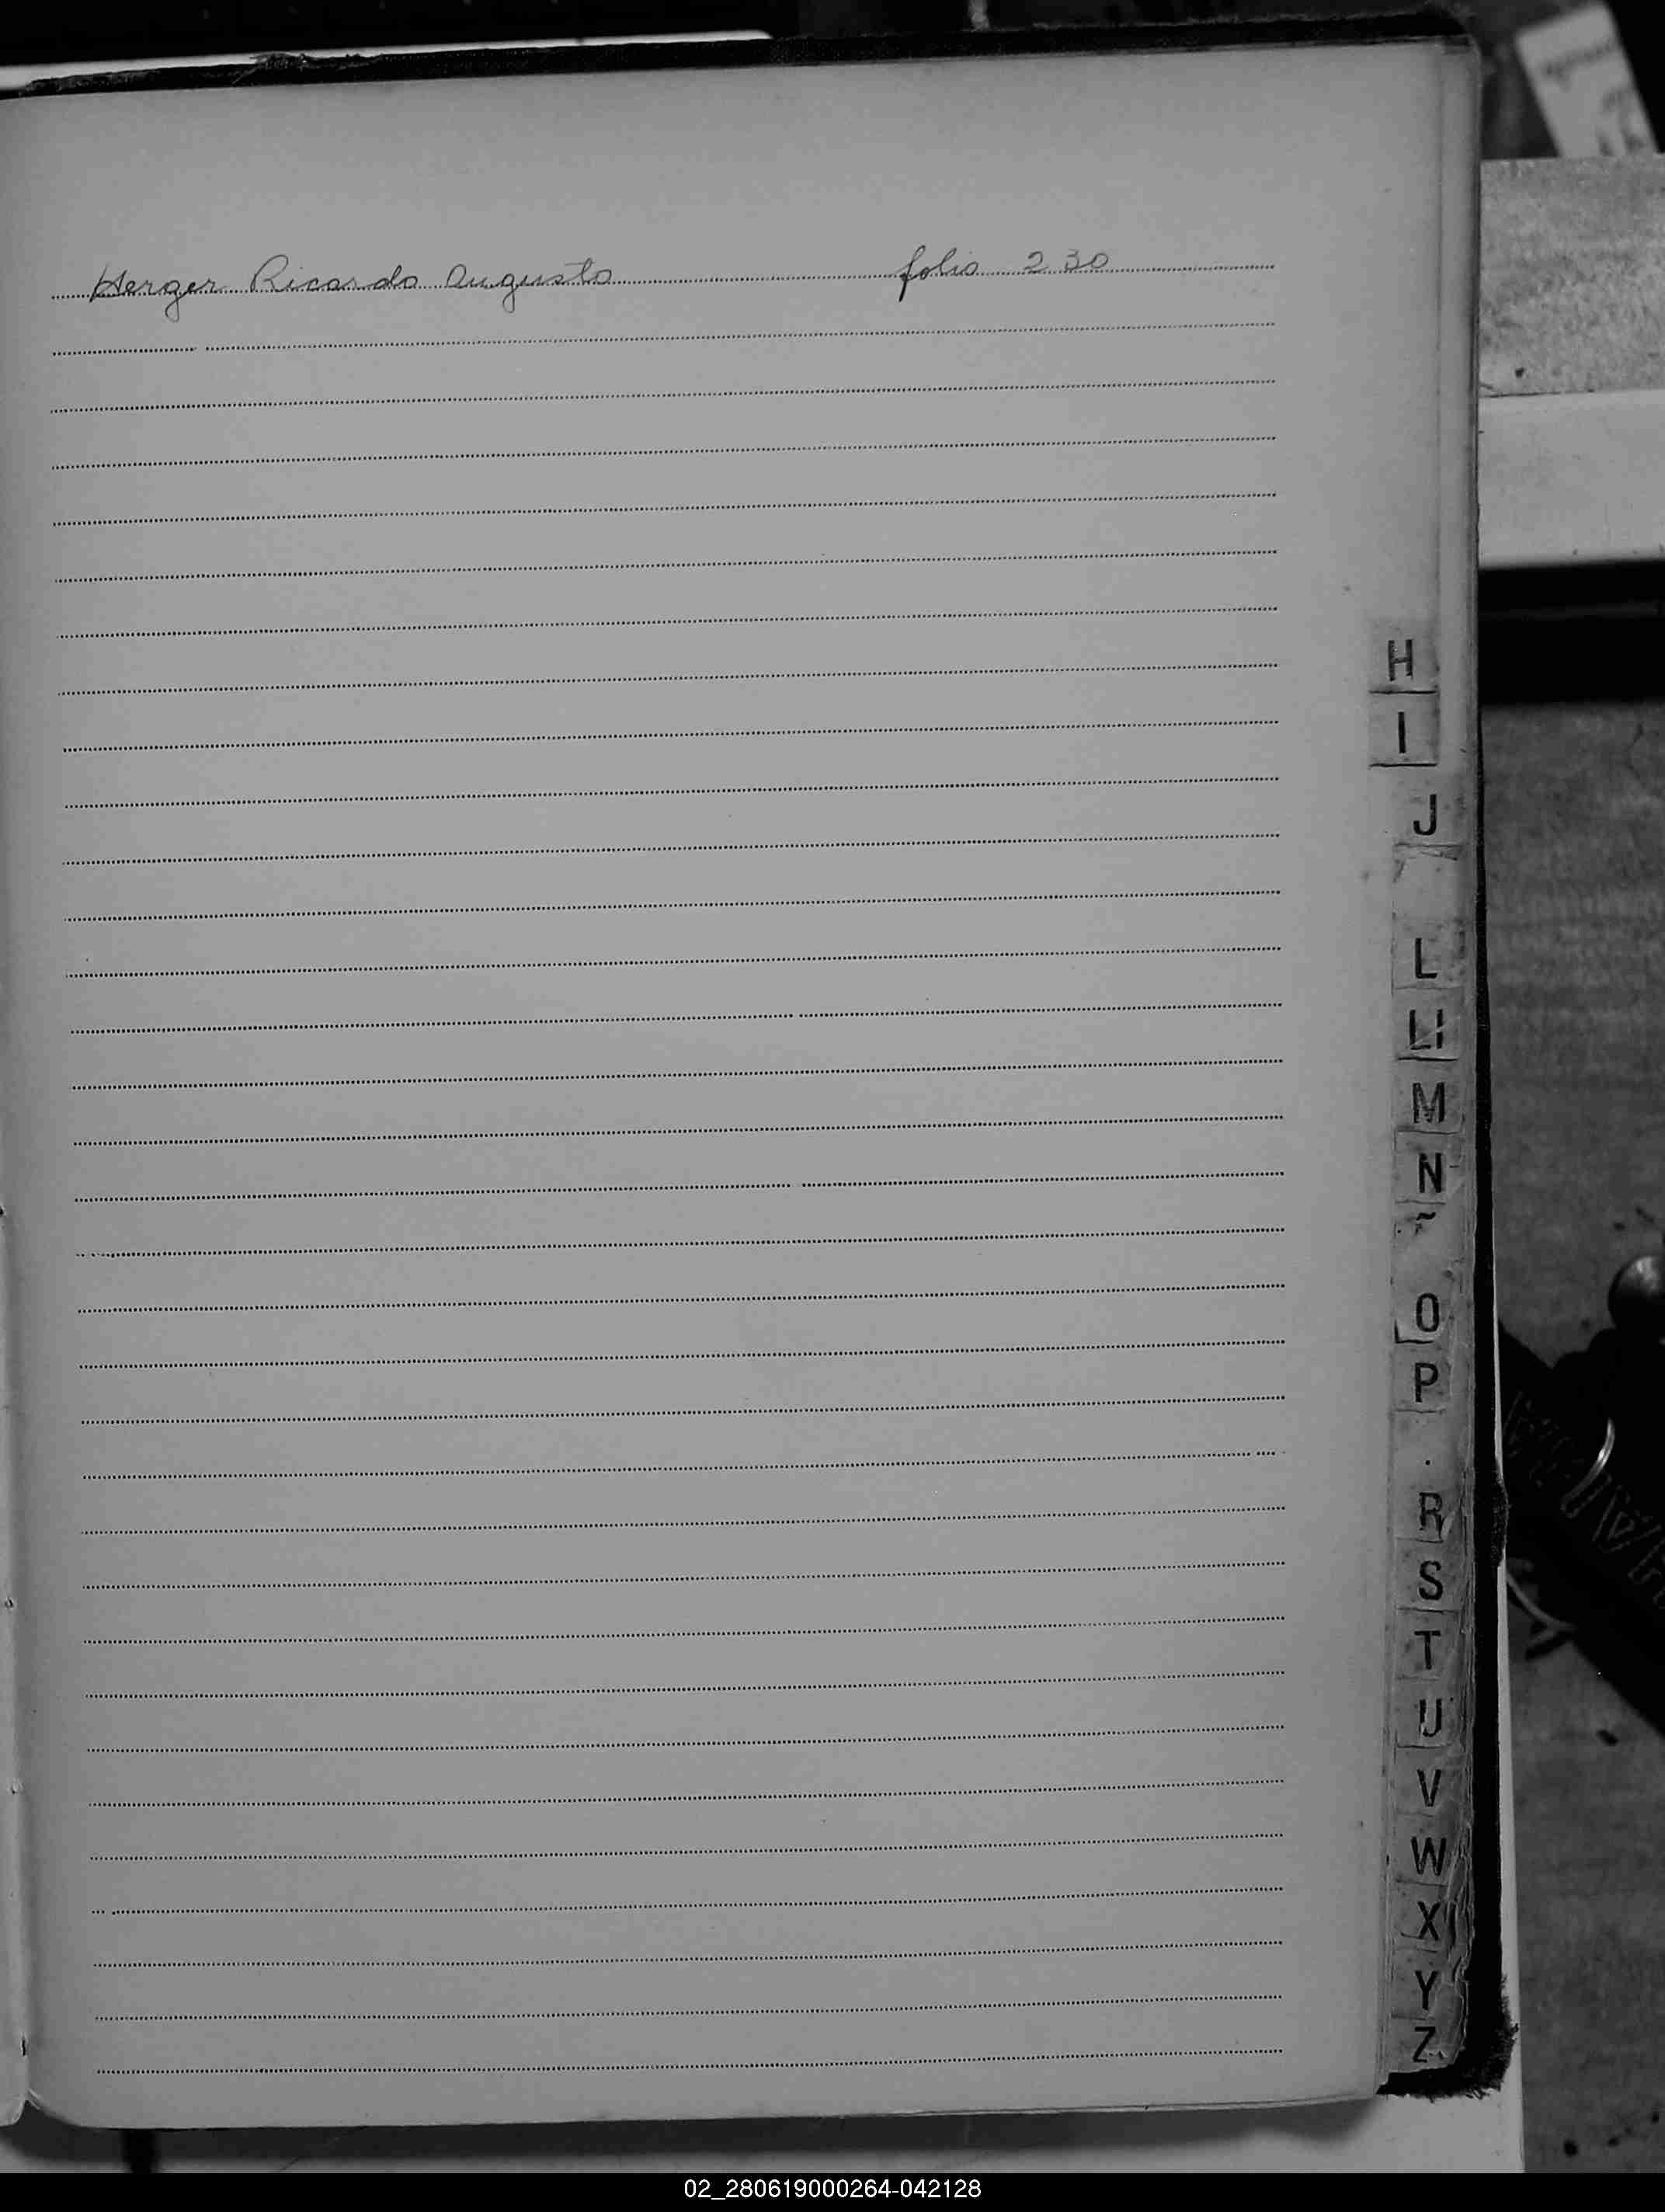 Herger Ricardo Augusto folio 230
H
I
J
L
Ll
M
N
O
P
R
S
T
U
V
W
X
Y
Z
02_280619000264-042128